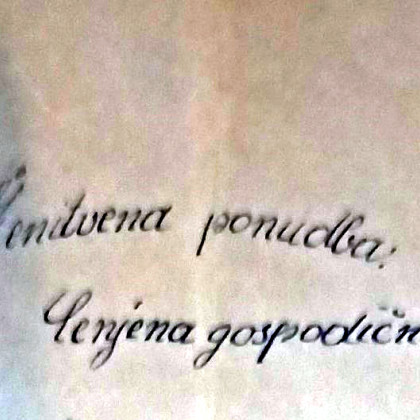 Ženitvena ponudba:
Cenjena gospodičn